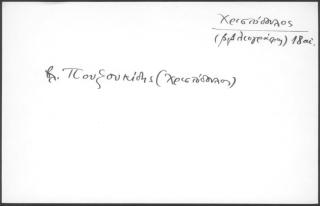 Χριστόπουλος
(βιβλιογράφος) 18 αι.
βλ. Πουξουκίδης (Χριστόπουλος)